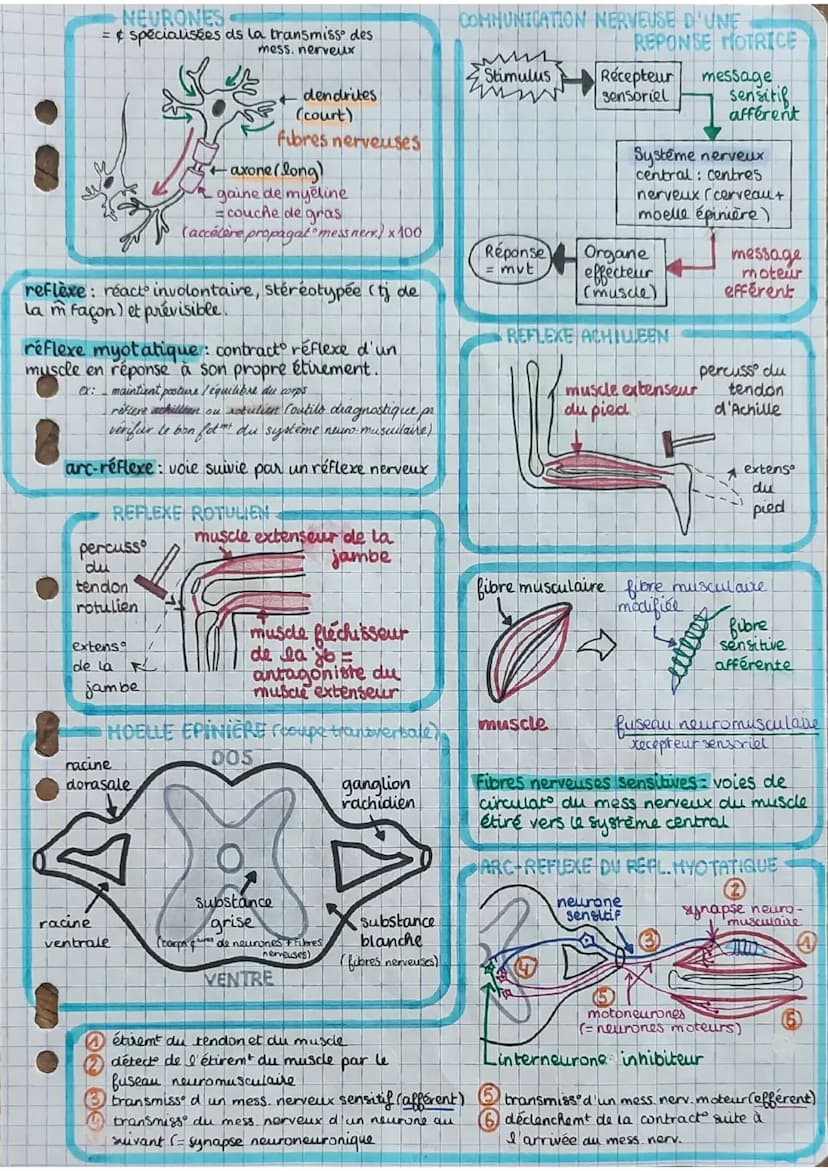 NEURONES
= ¢ spécialisées ds la transmiss° des
mess. nerveux
dendrites
(court)
fibres nerveuses
axone (long)
gaine de myéline
= couche de gras
(accélère propagat° mess nerv.) x100
COMMUNICATION NERVEUSE D'UNE
REPONSE MOTRICE
Stimulus
Récepteur
sensoriel
message
sensitif
afférent
Système nerveux
central : centres
nerveux (cerveau +
moelle épinière)
message
moteur
efférent
Organe
effecteur
(muscle)
Réponse
= mvt
reflèxe : réact° involontaire, stéréotypée (tj de
la m̂ façon) et prévisible.
réflexe myotatique : contract° réflexe d'un
muscle en réponse à son propre étirement.
ex: - maintient posture / équilibre du corps
- réflexe achilléen ou rotulien (outils diagnostique pr
vérifier le bon fct° mt du système neuro-musculaire)
arc-réflexe : voie suivie par un réflexe nerveux
REFLEXE ACHILLEEN
muscle extenseur
du pied
percuss° du
tendon
d'Achille
extens°
du
pied
REFLEXE ROTULIEN
percuss°
du
tendon
rotulien
extens°
de la
jambe
muscle extenseur de la
jambe
muscle fléchisseur
de la jb =
antagoniste du
muscle extenseur
fibre musculaire
muscle
fibre musculaire
modifiée
fibre
sensitive
afférente
fuseau neuromusculaire
récepteur sensoriel
Fibres nerveuses sensitives = voies de
circulat° du mess nerveux du muscle
étiré vers le système central
MOELLE EPINIÈRE (coupe transversale)
DOS
racine
dorasale
ganglion
rachidien
racine
ventrale
substance
grise
(corps ¢ures de neurones + fibres
nerveuses)
substance
blanche
(fibres nerveuses)
VENTRE
ARC-REFLEXE DU REFL. MYOTATIQUE
neurone
sensitif
②
synapse neuro-
musculaire
③
①
④
⑤
⑥
motoneurones
(= neurones moteurs)
interneurone inhibiteur
① étiremt du tendon et du muscle
② détect° de l'étiremt du muscle par le
fuseau neuromusculaire
③ transmiss° d'un mess. nerveux sensitif (afférent)
④ transmiss° du mess. nerveux d'un neurone au
suivant (= synapse neuroneuronique
⑤ transmiss° d'un mess. nerv. moteur (efférent)
⑥ déclenchemt de la contract° suite à
l'arrivée du mess. nerv.